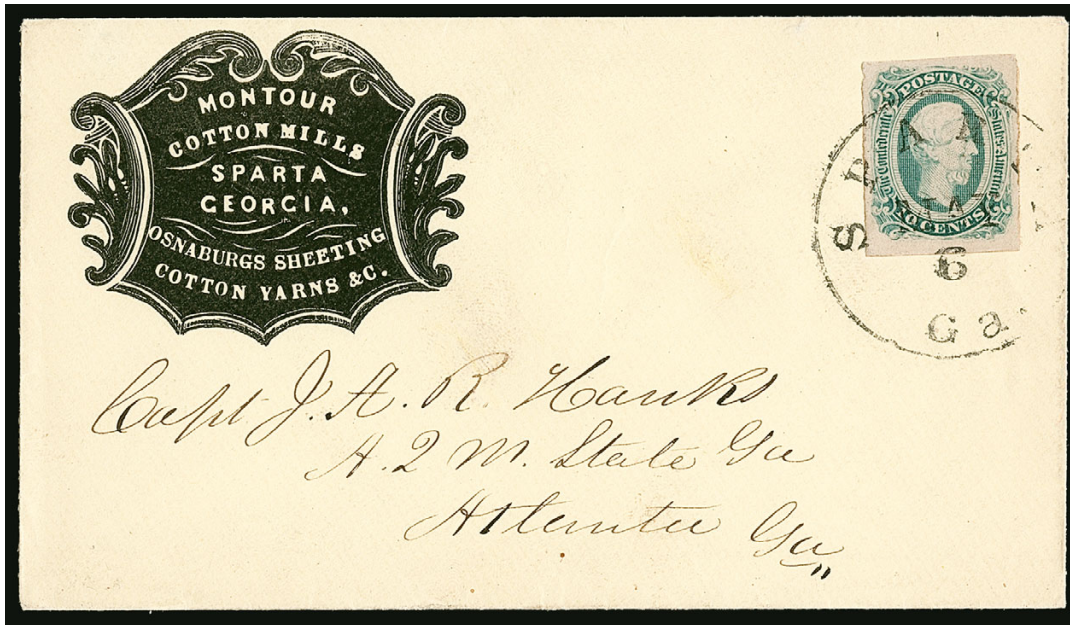 MONTOUR
COTTON MILLS
SPARTA
GEORGIA,
OSNABURGS SHEETING
COTTON YARNS &C.
POSTAGE
The Confederate States of America
CENTS
SPARTA
6
Ga.
Capt J. A. R. Hanks
A. Q M. State Ga
Atlanta Ga